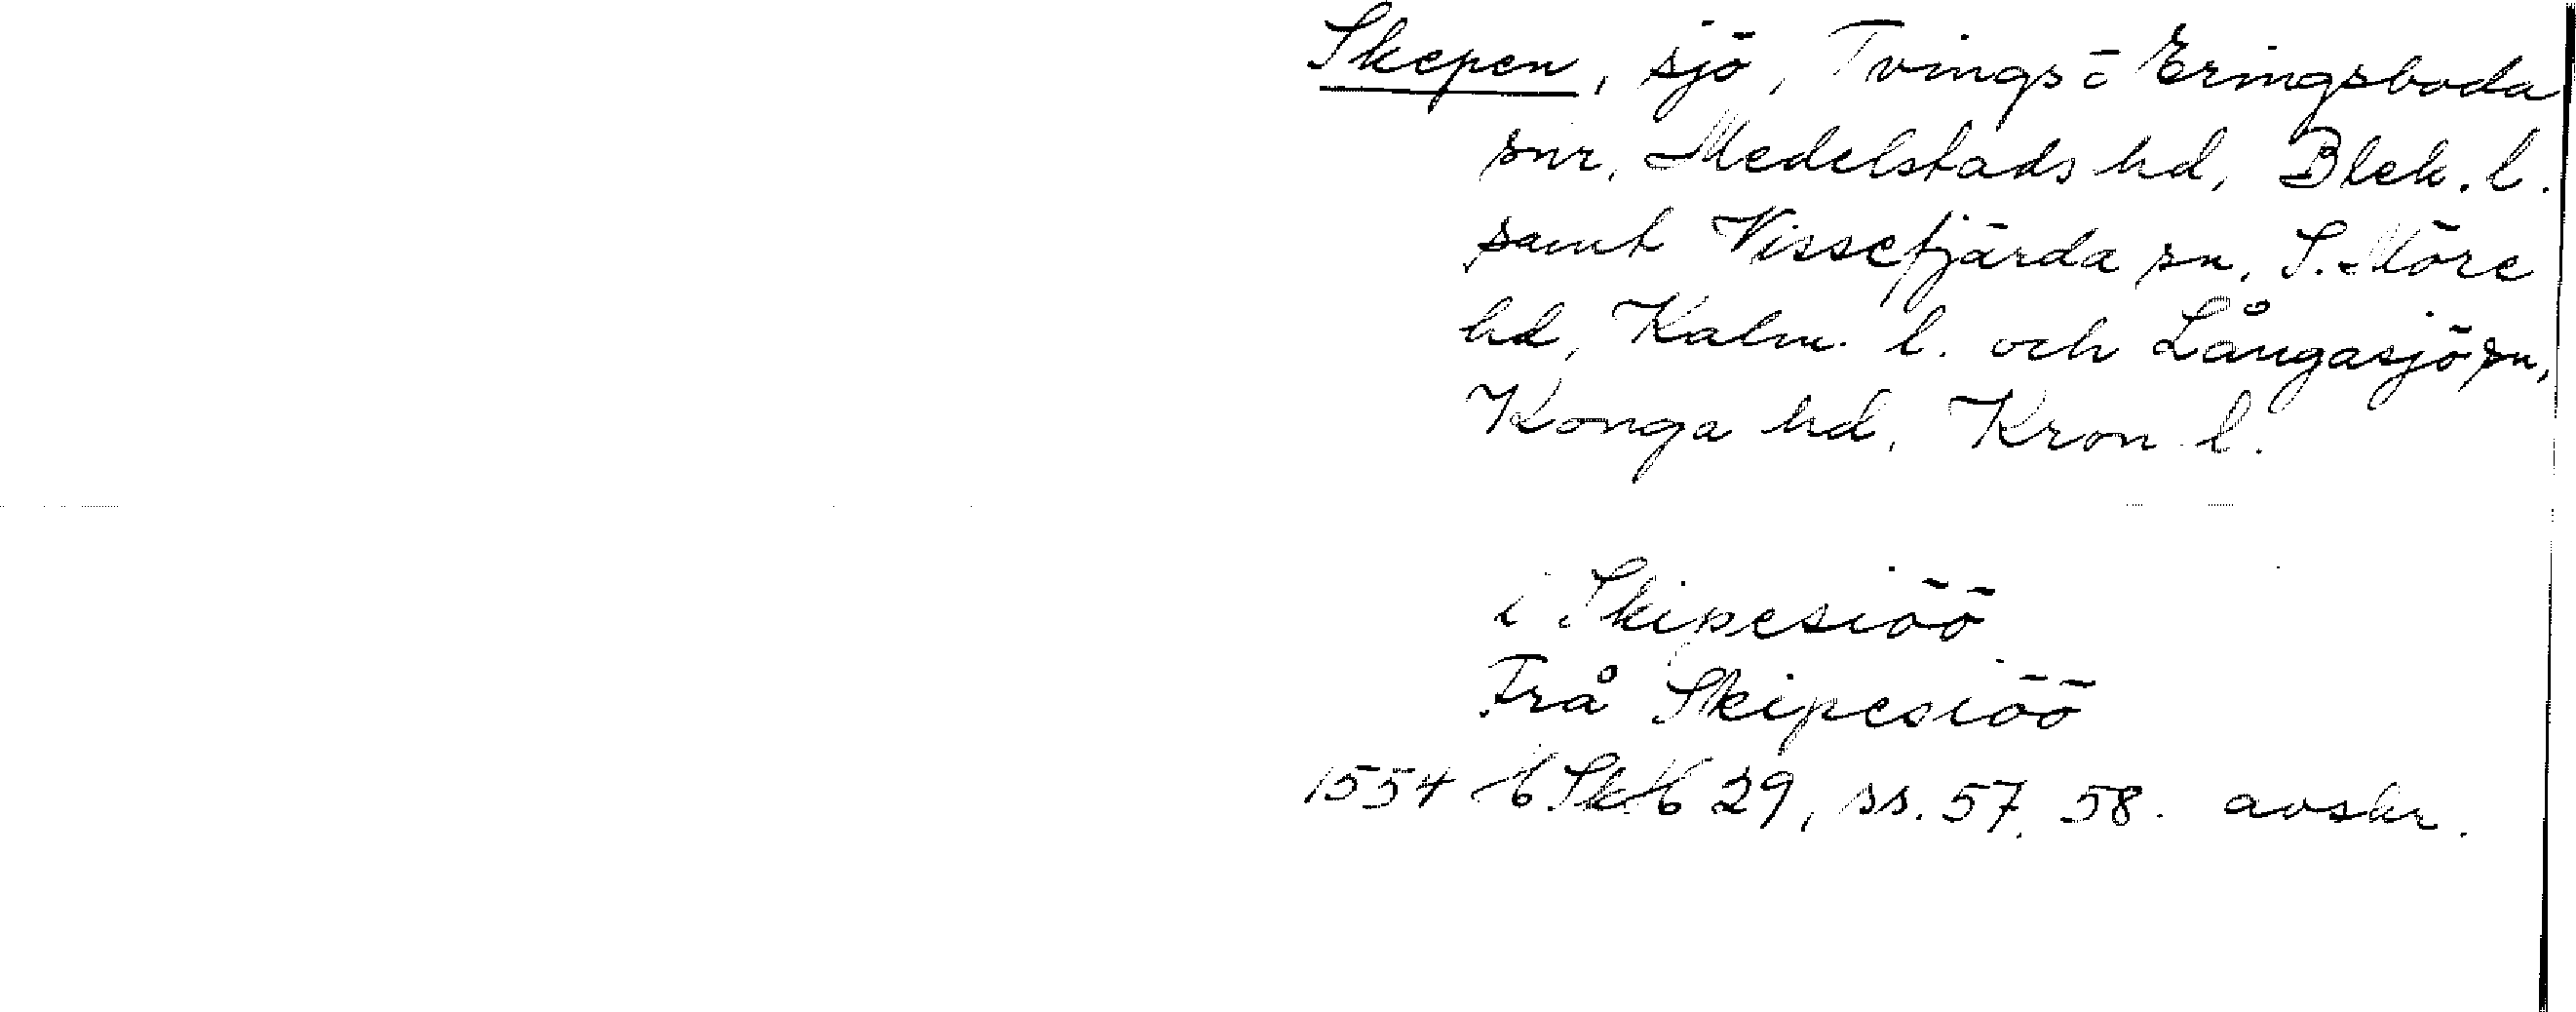 Skepen, sjö, Tvings o Eringsboda
snr, Medelstads hd, Blek. l.
samt Vissefjärda sn, S. Möre
hd, Kalm. l. och Långasjö sn,
Konga hd, Kron. l.
i Skipesiöö
Frå Skipesiöö
1554 29, ss. 57, 58. avskr.